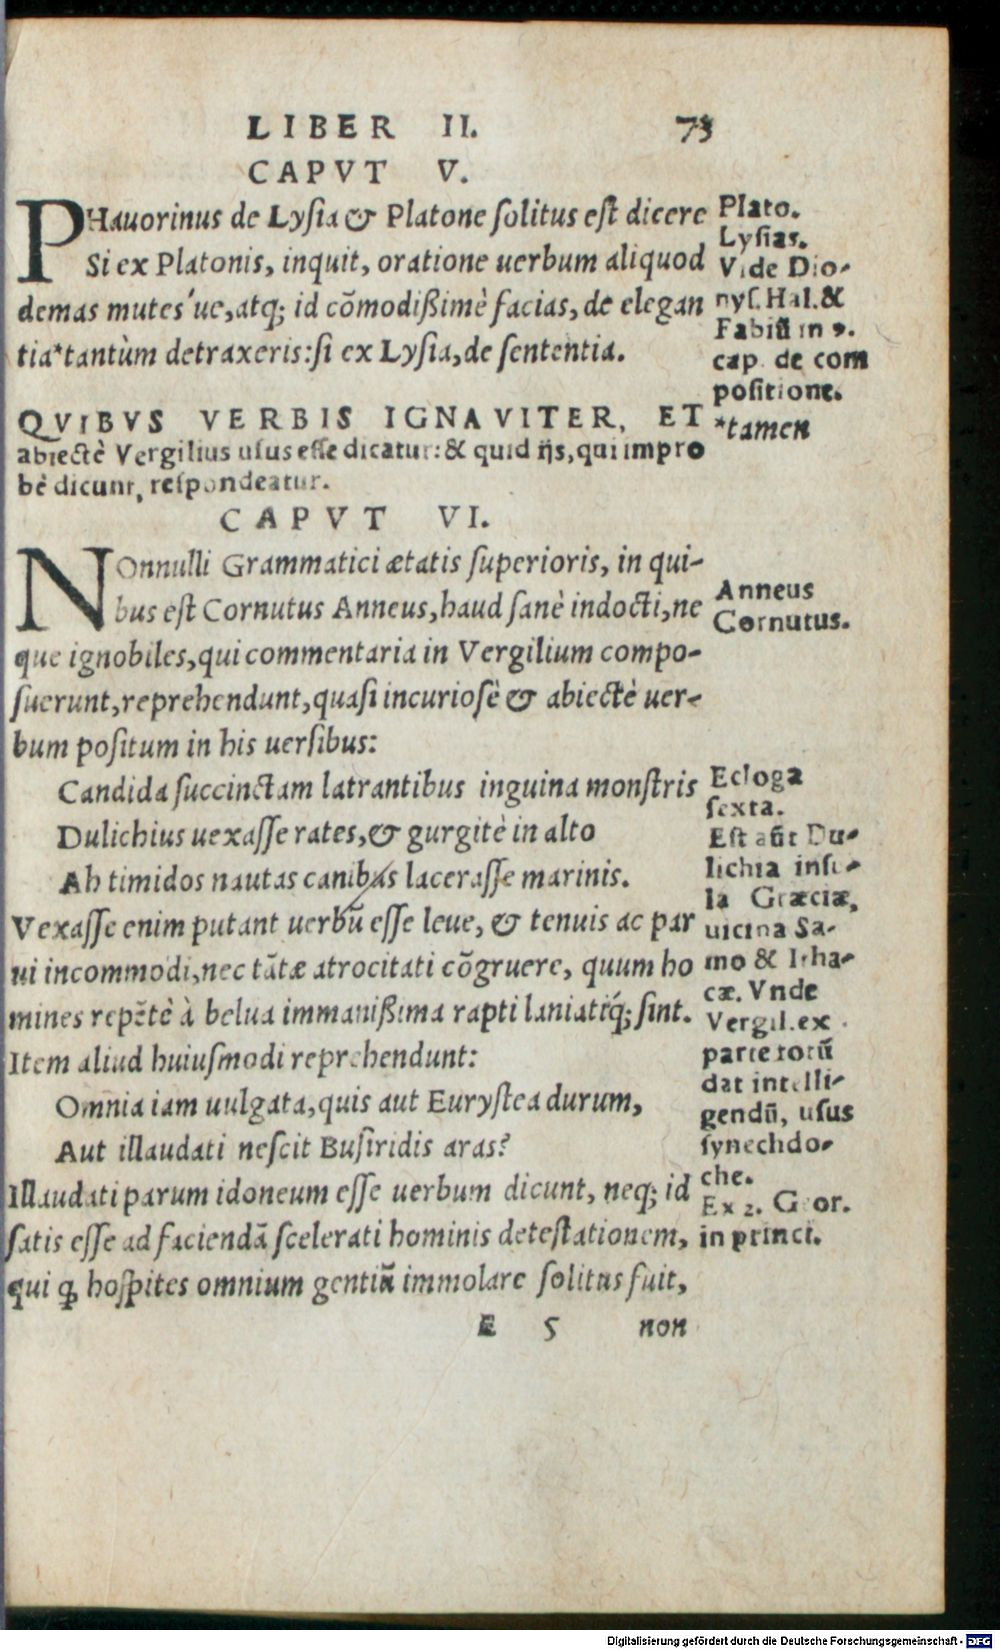 LIBER II. 73
CAPVT V.
PHauorinus de Lysia & Platone solitus est dicere
Si ex Platonis, inquit, oratione uerbum aliquod
demas mutes'ue, atq; id cõmodißimè facias, de elegan
tia*tantùm detraxeris: si ex Lysia, de sententia.
Plato.
Lysias.
Vide Dio-
nys. Hal. &
Fabiũ in 9.
cap. de com
positione.
*tamen
QVIBVS VERBIS IGNAVITER, ET
abiectè Vergilius usus esse dicatur: & quid ijs, qui impro
bè dicunt, respondeatur.
CAPVT VI.
NOnnulli Grammatici ætatis superioris, in qui-
bus est Cornutus Anneus, haud sanè indocti, ne
que ignobiles, qui commentaria in Vergilium compo-
suerunt, reprehendunt, quasi incuriosè & abiectè uer-
bum positum in his uersibus:
Anneus
Cornutus.
Candida succinctam latrantibus inguina monstris
Dulichius uexasse rates, & gurgitè in alto
Ah timidos nautas canibus lacerasse marinis.
Vexasse enim putant uerbũ esse leue, & tenuis ac par
ui incommodi, nec tãtæ atrocitati cõgruere, quum ho
mines repẽtè à belua immanißima rapti laniatiq́; sint.
Item aliud huiusmodi reprehendunt:
Omnia iam uulgata, quis aut Eurystea durum,
Aut illaudati nescit Busiridis aras?
Illaudati parum idoneum esse uerbum dicunt, neq; id
satis esse ad faciendã scelerati hominis detestationem,
qui ꝙ hospites omnium gentiũ immolare solitus fuit,
Ecloga
sexta.
Est aũt Du-
lichia insu-
la Græciæ,
uicina Sa-
mo & Itha-
cæ. Vnde
Vergil. ex
parte totũ
dat intelli-
gendũ, usus
synechdo-
che.
Ex 2. Geor.
in princi.
E 5 non
Digitalisierung gefördert durch die Deutsche Forschungsgemeinschaft - DFG